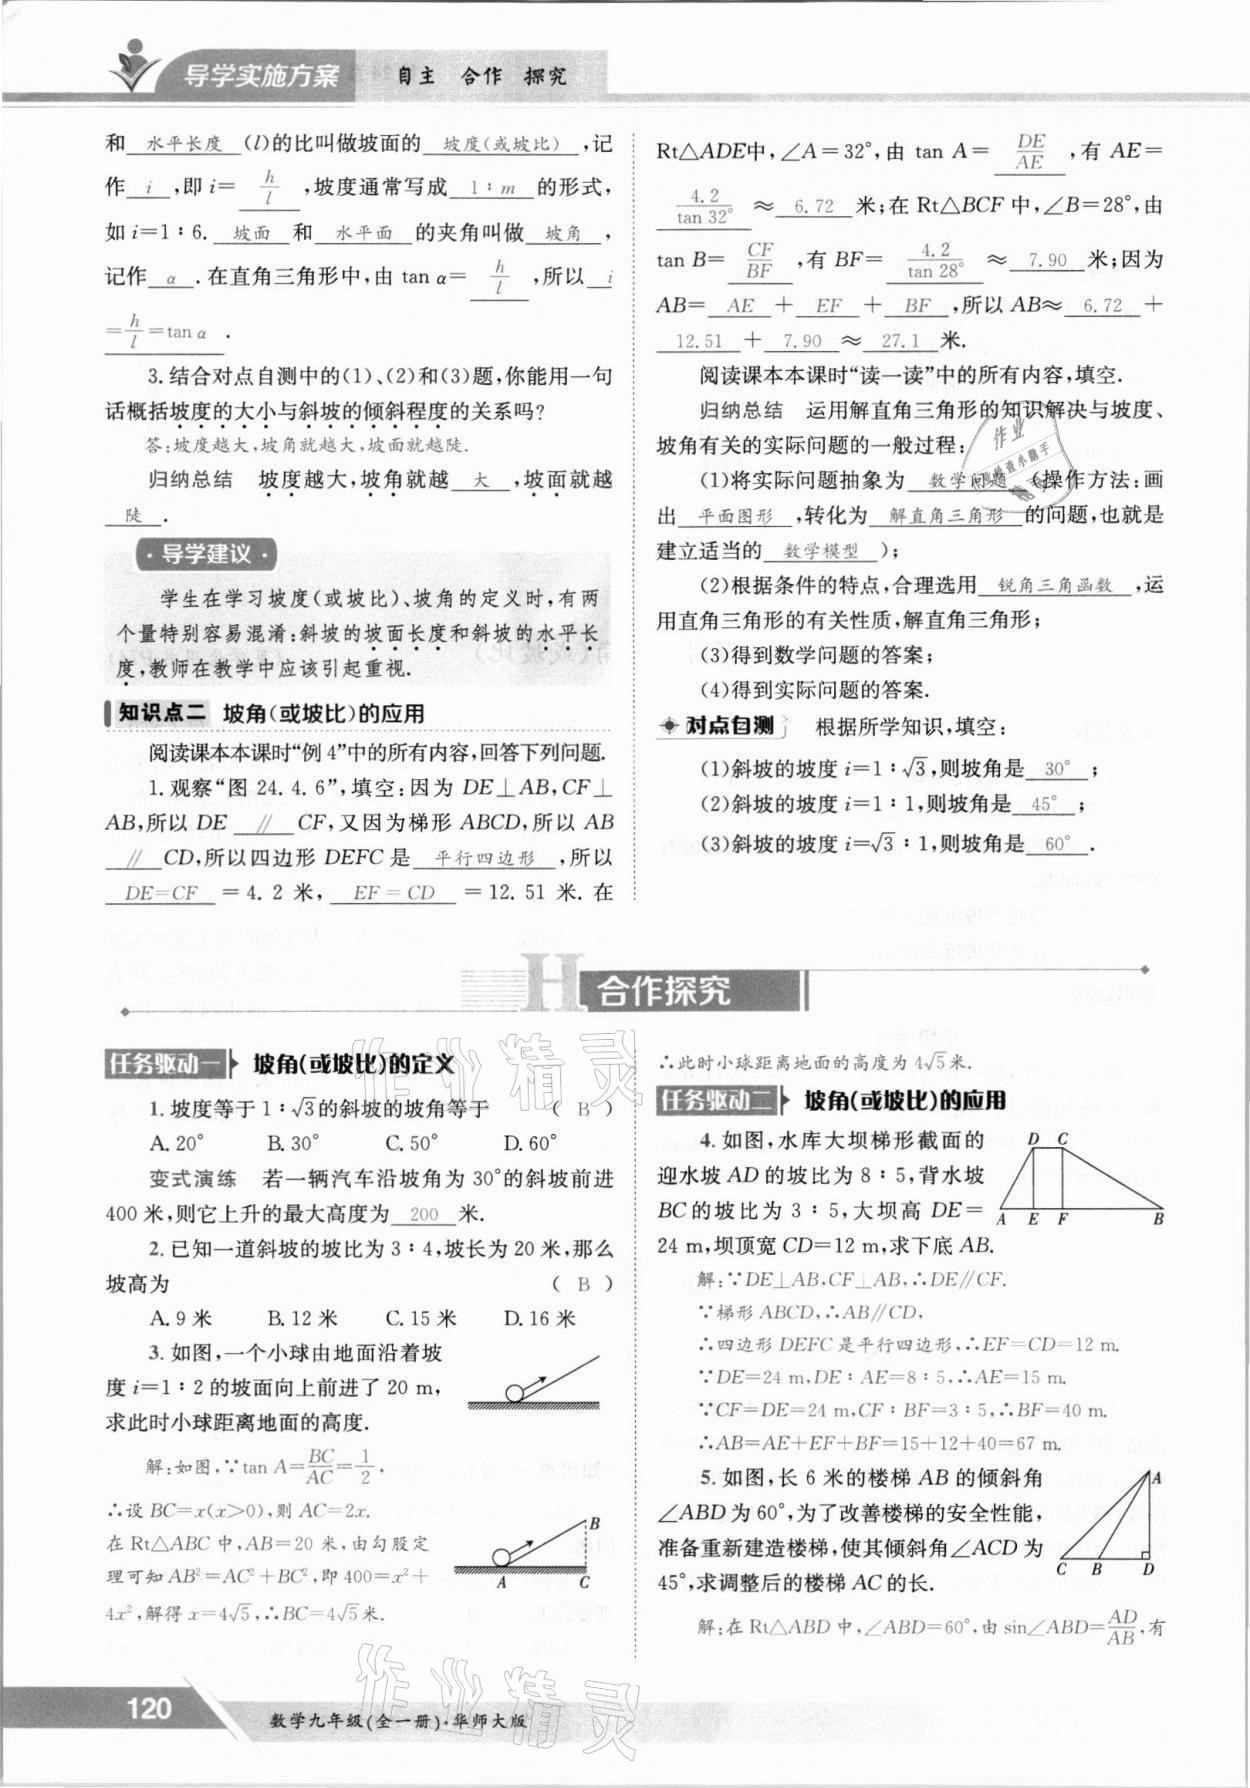 导学实施方案 自主 合作 探究
和 水平长度 (l)的比叫做坡面的 坡度(或坡比) ,记
作 i ,即 i= h/l ,坡度通常写成 1∶m 的形式,
如 i=1∶6. 坡面 和 水平面 的夹角叫做 坡角 ,
记作 α .在直角三角形中,由 tan α= h/l ,所以 i
=h/l=tan α .
3.结合对点自测中的(1)、(2)和(3)题,你能用一句
话概括坡度的大小与斜坡的倾斜程度的关系吗?
答:坡度越大,坡角就越大,坡面就越陡.
归纳总结 坡度越大,坡角就越 大 ,坡面就越
陡 .
·导学建议·
学生在学习坡度(或坡比)、坡角的定义时,有两
个量特别容易混淆:斜坡的坡面长度和斜坡的水平长
度,教师在教学中应该引起重视.
知识点二 坡角(或坡比)的应用
阅读课本本课时“例 4”中的所有内容,回答下列问题.
1.观察“图 24.4.6”,填空:因为 DE⊥AB,CF⊥
AB,所以 DE ∥ CF,又因为梯形 ABCD,所以 AB
∥ CD,所以四边形 DEFC 是 平行四边形 ,所以
DE=CF =4.2 米, EF=CD =12.51 米.在
Rt△ADE中,∠A=32°,由 tan A= DE/AE ,有 AE=
4.2/tan 32° ≈ 6.72 米;在 Rt△BCF 中,∠B=28°,由
tan B= CF/BF ,有 BF= 4.2/tan 28° ≈ 7.90 米;因为
AB= AE + EF + BF ,所以 AB≈ 6.72 +
12.51 + 7.90 ≈ 27.1 米.
阅读课本本课时“读一读”中的所有内容,填空.
归纳总结 运用解直角三角形的知识解决与坡度、
坡角有关的实际问题的一般过程:
(1)将实际问题抽象为 数学问题 (操作方法:画
出 平面图形 ,转化为 解直角三角形 的问题,也就是
建立适当的 数学模型 );
(2)根据条件的特点,合理选用 锐角三角函数 ,运
用直角三角形的有关性质,解直角三角形;
(3)得到数学问题的答案;
(4)得到实际问题的答案.
对点自测 根据所学知识,填空:
(1)斜坡的坡度 i=1∶√3,则坡角是 30° ;
(2)斜坡的坡度 i=1∶1,则坡角是 45° ;
(3)斜坡的坡度 i=√3∶1,则坡角是 60° .
H 合作探究
任务驱动一 坡角(或坡比)的定义
1.坡度等于 1∶√3的斜坡的坡角等于 ( B )
A.20° B.30° C.50° D.60°
变式演练 若一辆汽车沿坡角为 30°的斜坡前进
400 米,则它上升的最大高度为 200 米.
2.已知一道斜坡的坡比为 3∶4,坡长为 20 米,那么
坡高为 ( B )
A.9 米 B.12 米 C.15 米 D.16 米
3.如图,一个小球由地面沿着坡
度 i=1∶2 的坡面向上前进了 20 m,
求此时小球距离地面的高度.
解:如图,∵tan A=BC/AC=1/2,
∴设 BC=x(x>0),则 AC=2x.
在 Rt△ABC 中,AB=20 米,由勾股定
理可知 AB²=AC²+BC²,即 400=x²+
4x²,解得 x=4√5,∴BC=4√5米.
B
A C
∴此时小球距离地面的高度为 4√5米.
任务驱动二 坡角(或坡比)的应用
4.如图,水库大坝梯形截面的
迎水坡 AD 的坡比为 8∶5,背水坡
BC 的坡比为 3∶5,大坝高 DE=
24 m,坝顶宽 CD=12 m,求下底 AB.
D C
A E F B
解:∵DE⊥AB,CF⊥AB,∴DE∥CF.
∵梯形 ABCD,∴AB∥CD,
∴四边形 DEFC 是平行四边形,∴EF=CD=12 m.
∵DE=24 m,DE∶AE=8∶5,∴AE=15 m.
∵CF=DE=24 m,CF∶BF=3∶5,∴BF=40 m.
∴AB=AE+EF+BF=15+12+40=67 m.
5.如图,长 6 米的楼梯 AB 的倾斜角
∠ABD 为 60°,为了改善楼梯的安全性能,
准备重新建造楼梯,使其倾斜角∠ACD 为
45°,求调整后的楼梯 AC 的长.
A
C B D
解:在 Rt△ABD 中,∠ABD=60°,由 sin∠ABD=AD/AB,有
作业精灵
作业精灵
120 数学九年级(全一册)·华师大版